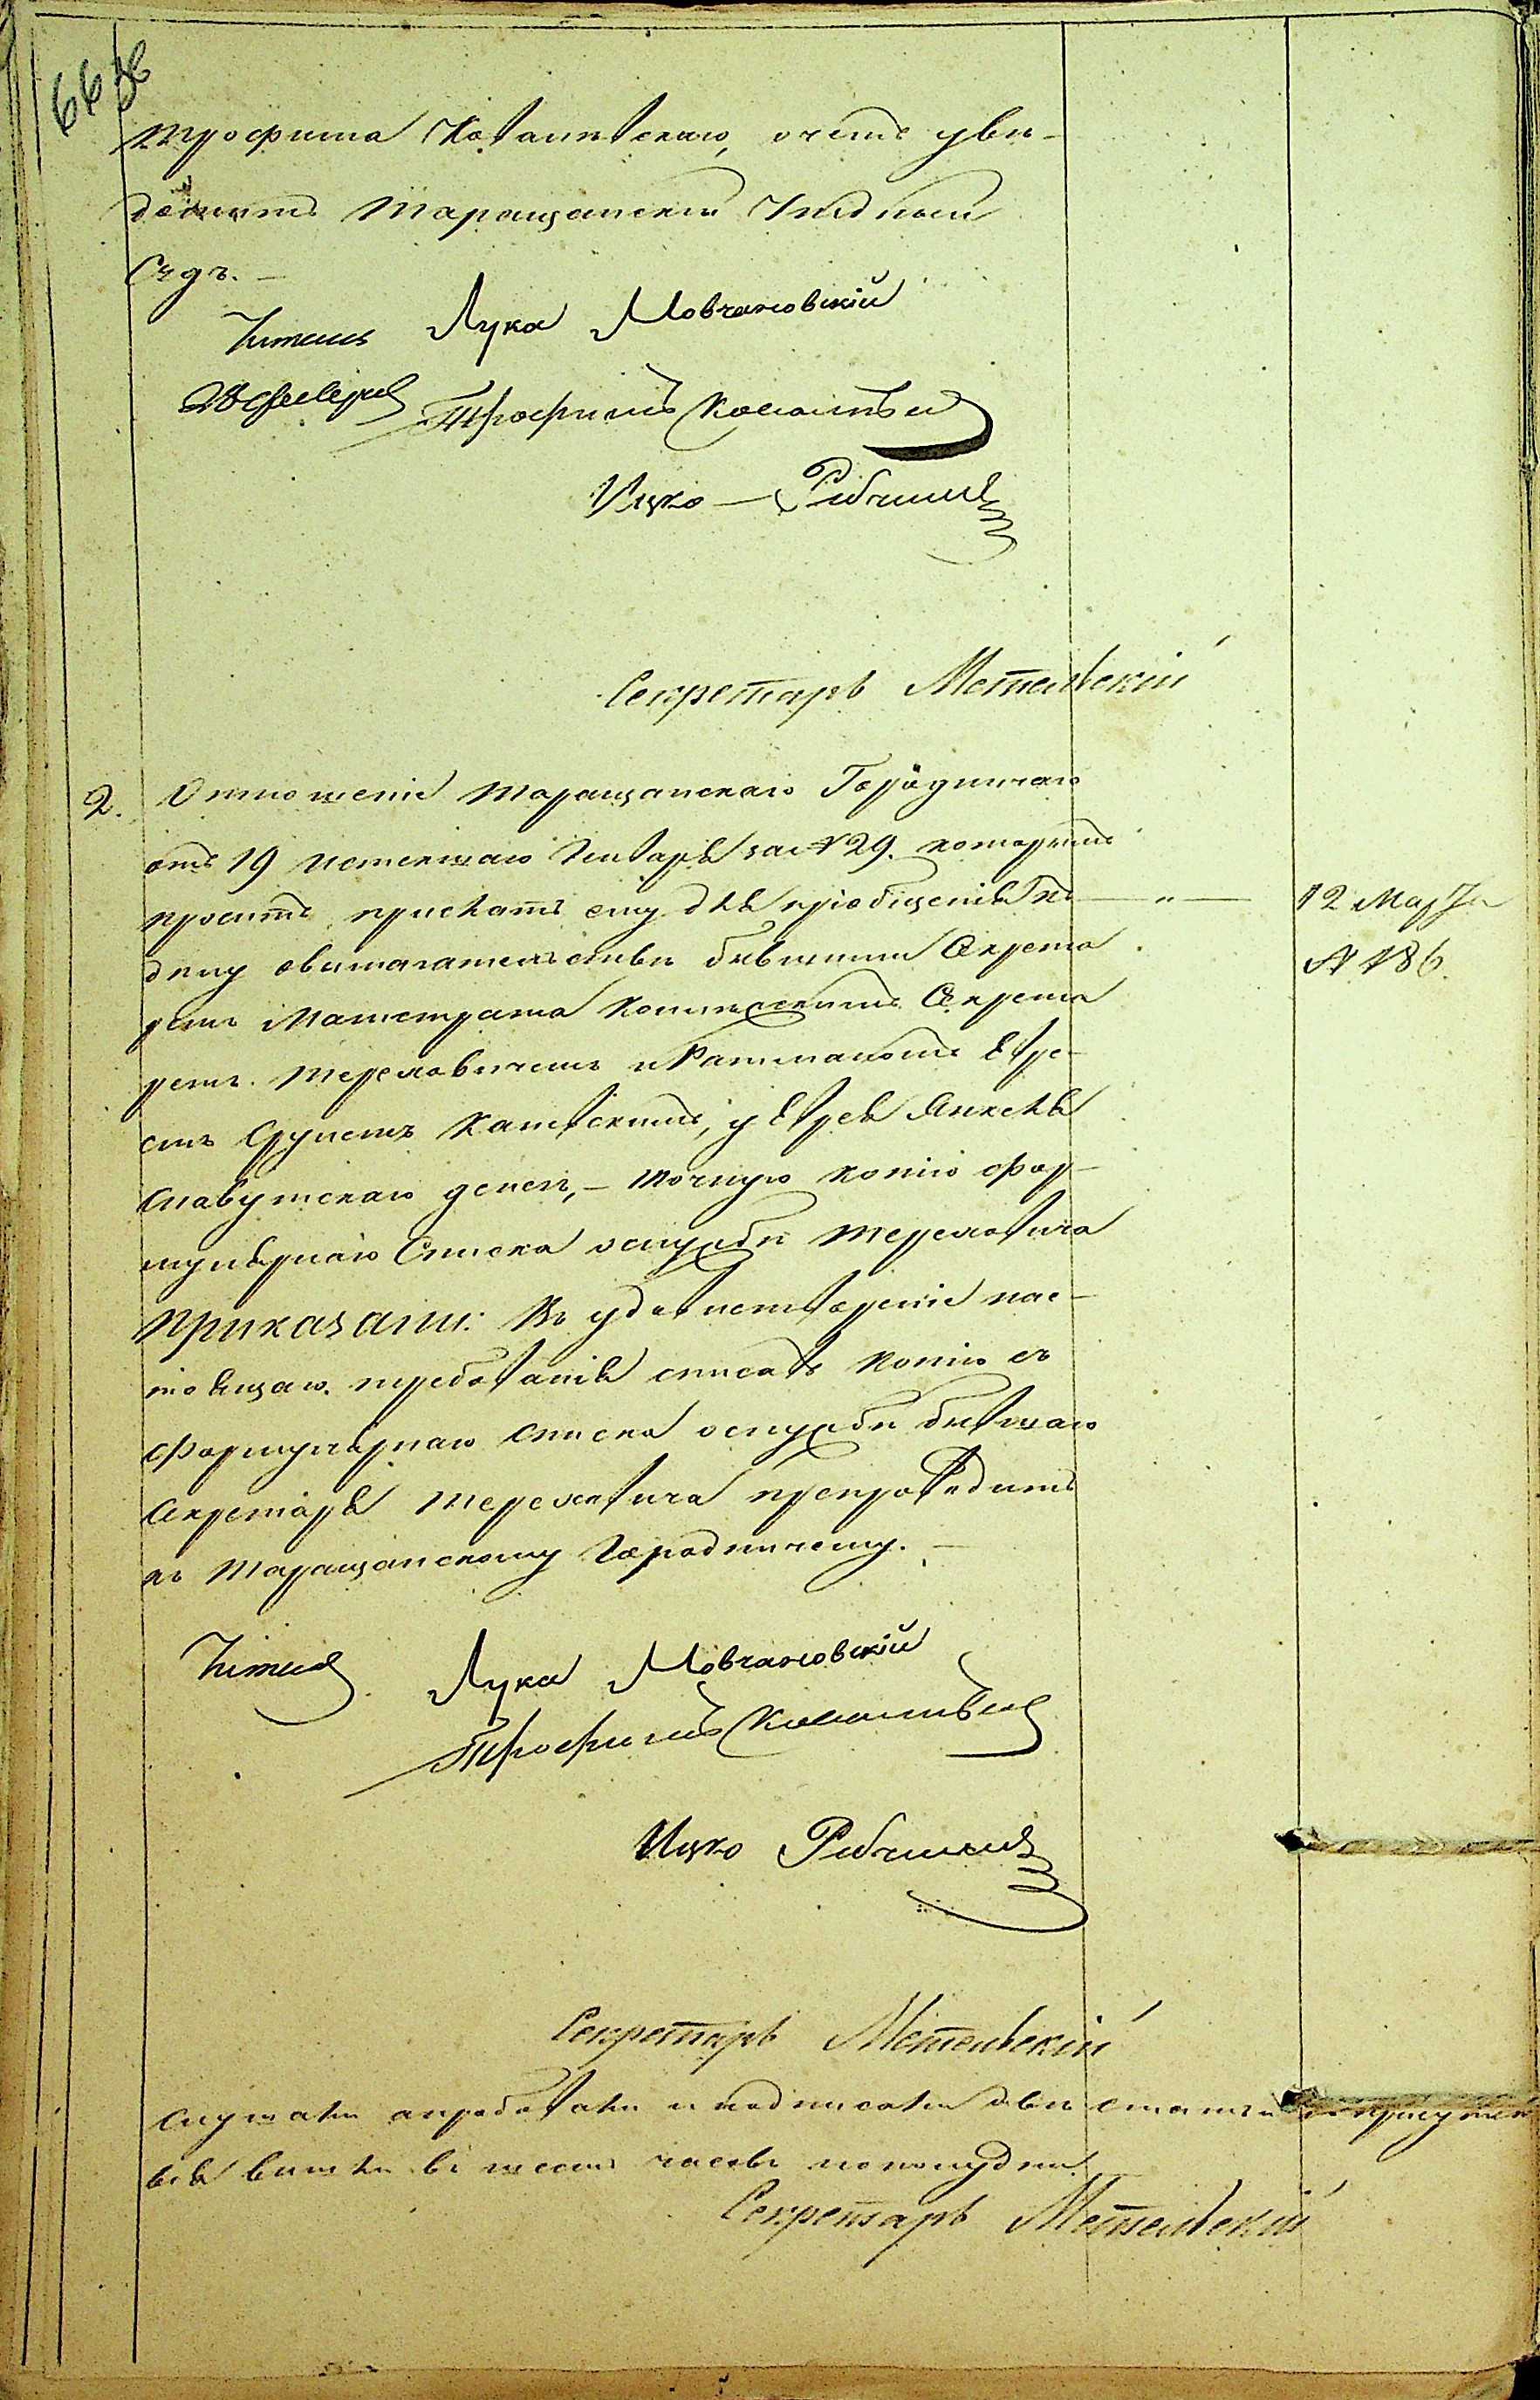 66 об
Трофима Кованскаго, о чемъ уви-
домить Таращанскій Уѣздный
Судъ. —
Лука Мовчановскій
Трофимъ
Ицко —
Секретарь Метельскій
2. Отношеніе Таращанскаго Городничаго
отъ 19 истекшаго Генваря за № 29. которымъ
проситъ прислать ему для пріобщенія къ — " — 12 Марта
дѣлу о вымогательствѣ бывшими Секрета № 186.
ремъ Магистрата Секрета
ремъ Тереховичемъ и Ратманомъ Евре-
емъ Срулемъ у Еврея Янкеля
Славутскаго денегъ, — точную копію фор-
мулярнаго Списка о службѣ Тереховича
Приказали: Въ удовлетвореніе нас-
тоящаго требованія списавъ копію съ
формулярнаго списка о службѣ бывшаго
Секретаря Тереховича препроводить
къ Таращанскому Городничему. —
Лука Мовчановскій
Трофимъ
Ицко
Секретарь Метельскій
Слушали апробовали и подписали двѣ статьи и присутст
вія вышли въ шесть часовъ пополудни.
Секретарь Метельскій